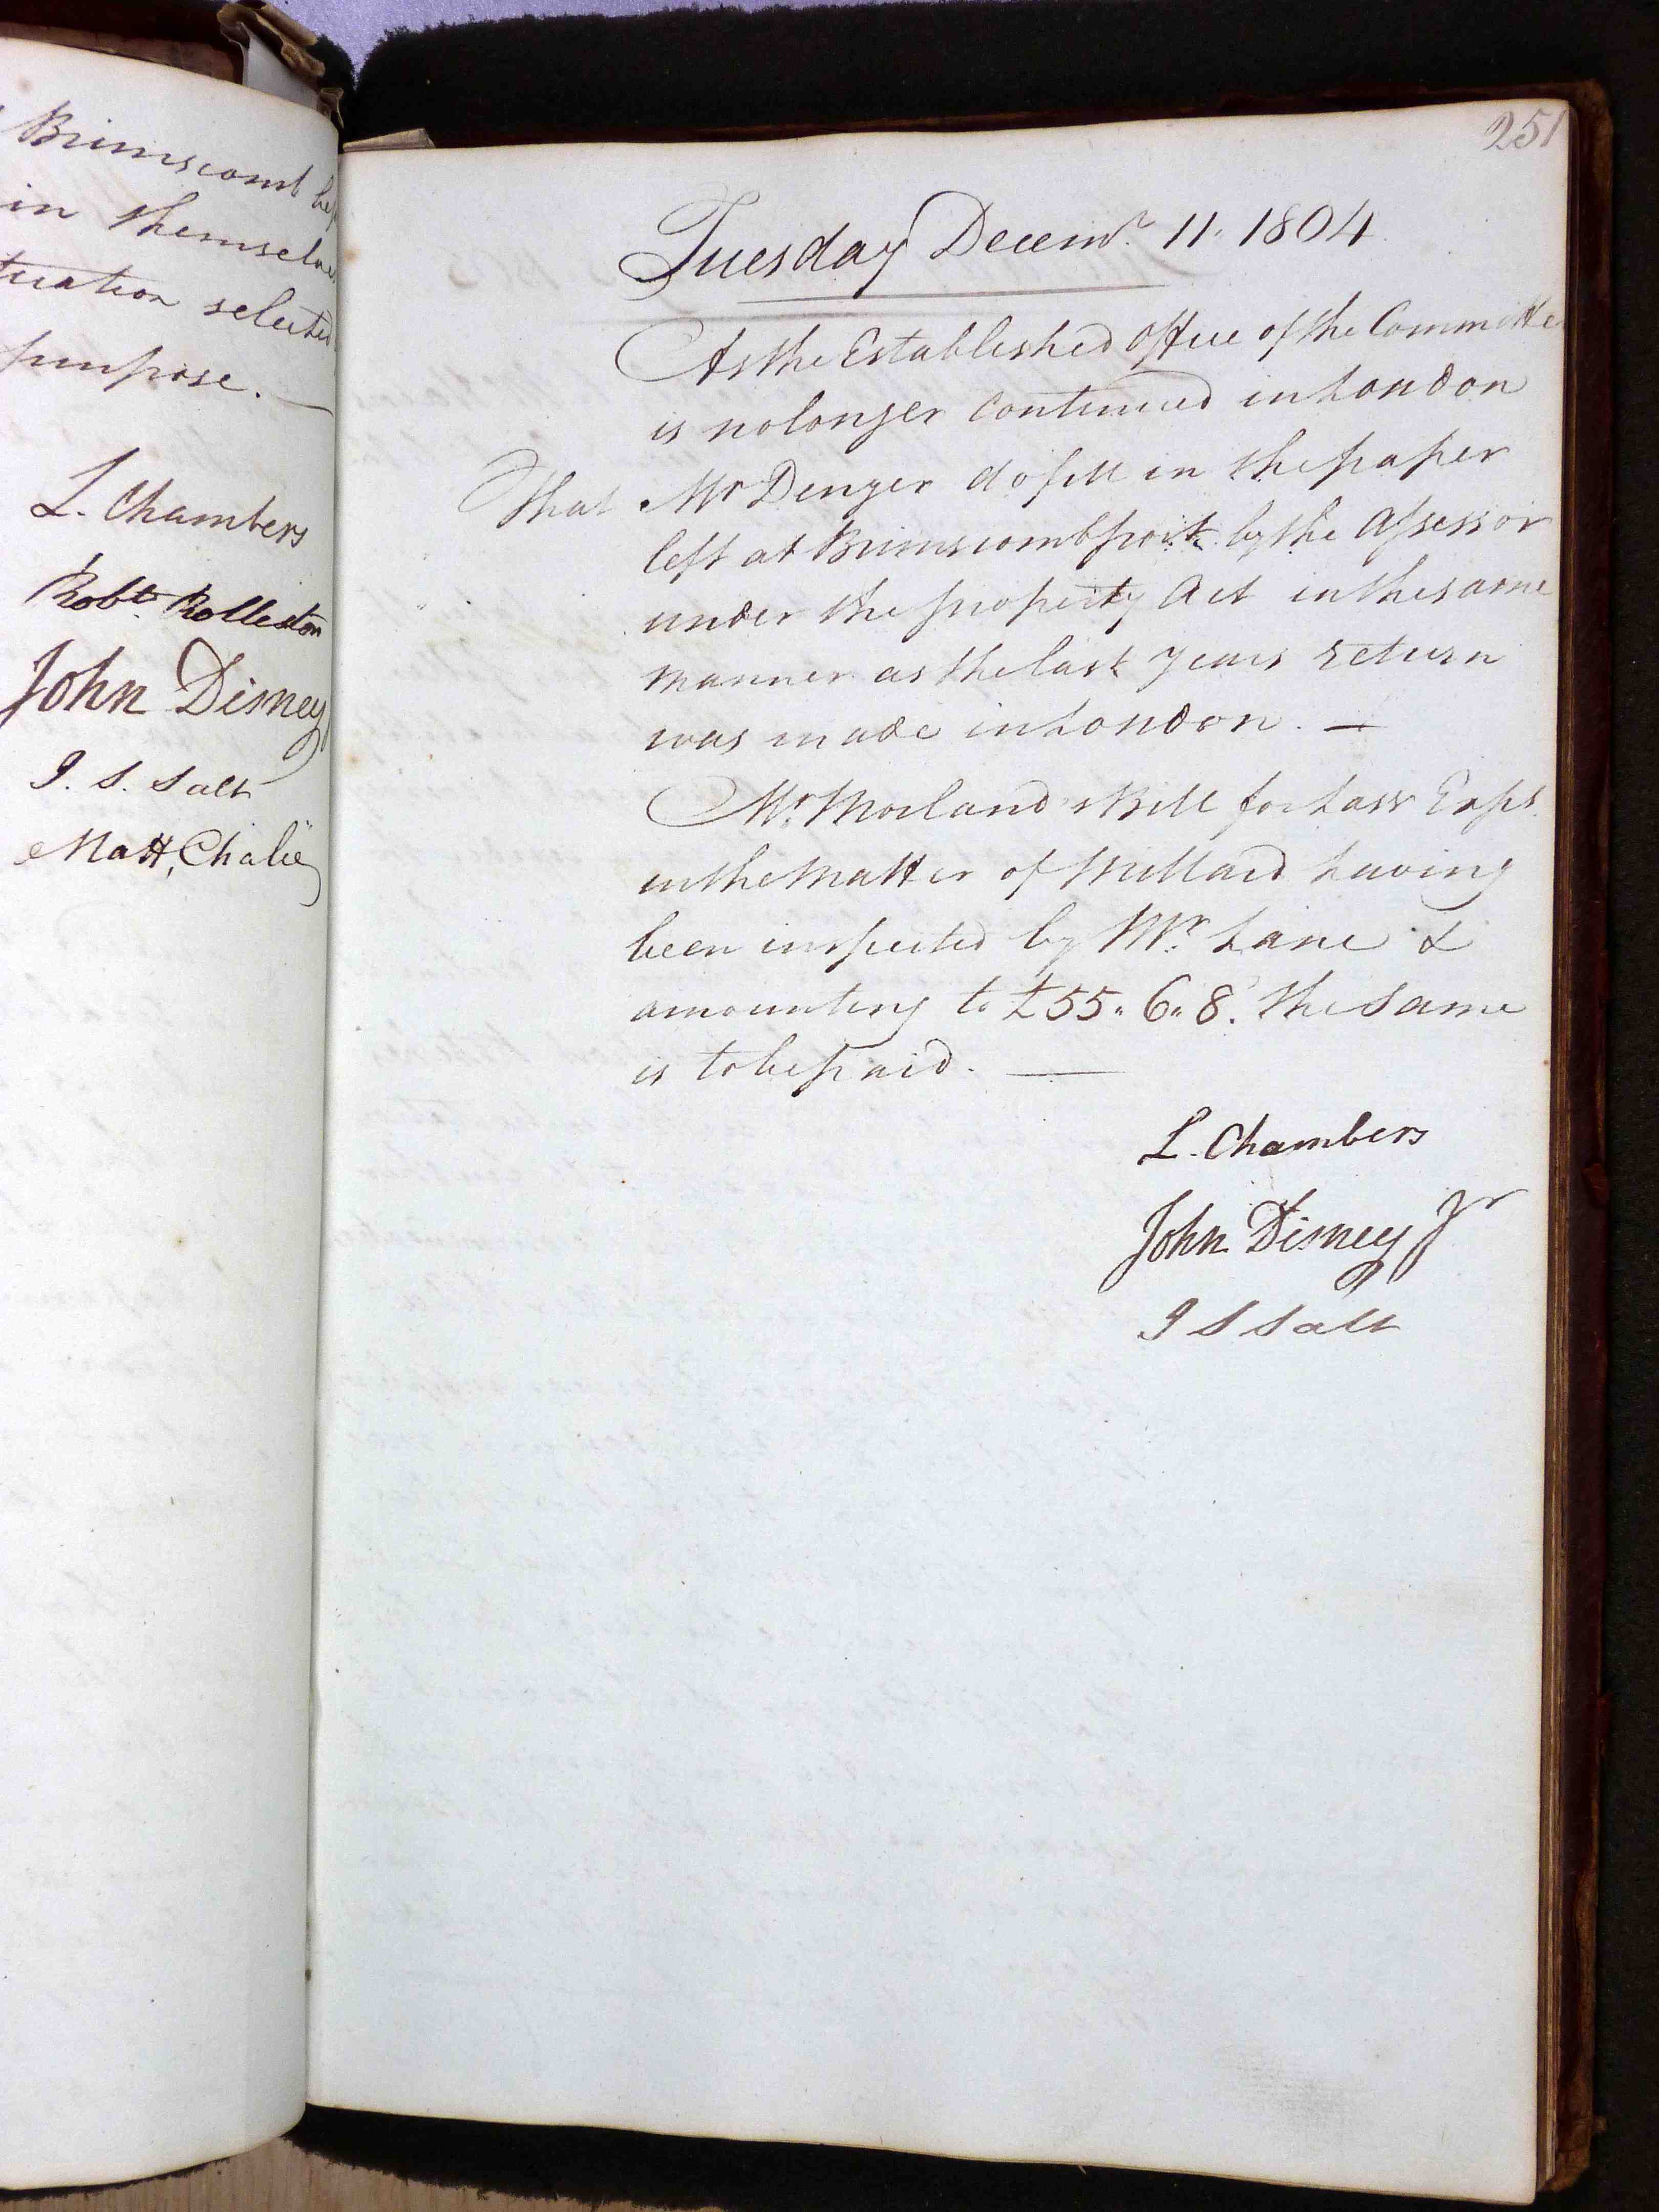 Brimscomb
in themselves
tuation selected
purpose. —
L. Chambers
Robt. Rolleston
John Disney
J. S. Salt
Matt, Chalië
251
Tuesday Decemr. 11. 1804
As the Established Office of the Committe
is no longer continued in London
That Mr Denyer do fill in the paper
left at Brimscomb port by the Assessor
under the property Act in the same
manner as the last years return
was made in London. —
Mr. Morland's Bill for Law Exps.
in the Matter of Millard having
been inspected by Mr. Lane &
amounting to £55 " 6 " 8. the Same
is to be paid. —
L. Chambers
John Disney Jr
J S Salt